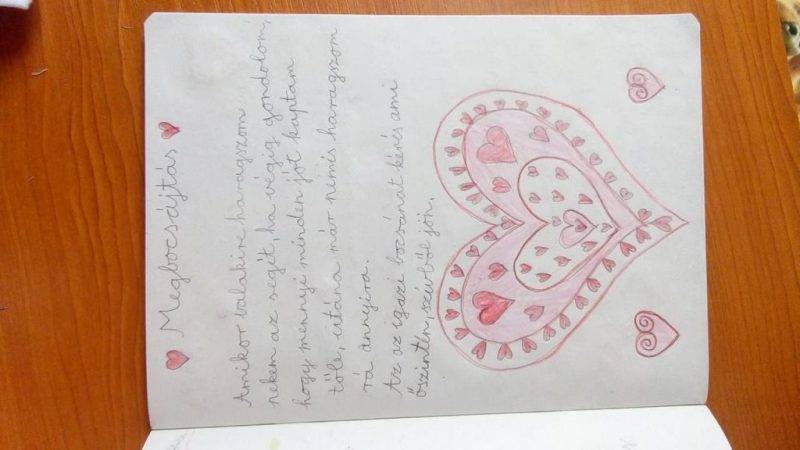 Megbocsájtás
Amikor valakire haragszom
nekem az segít, ha végig gondolom,
hogy mennyi minden jót kaptam
tőle, utána már nemis haragszom
rá annyira.
Az az igazi bocsánat kérés ami
őszintén, szívből jön.